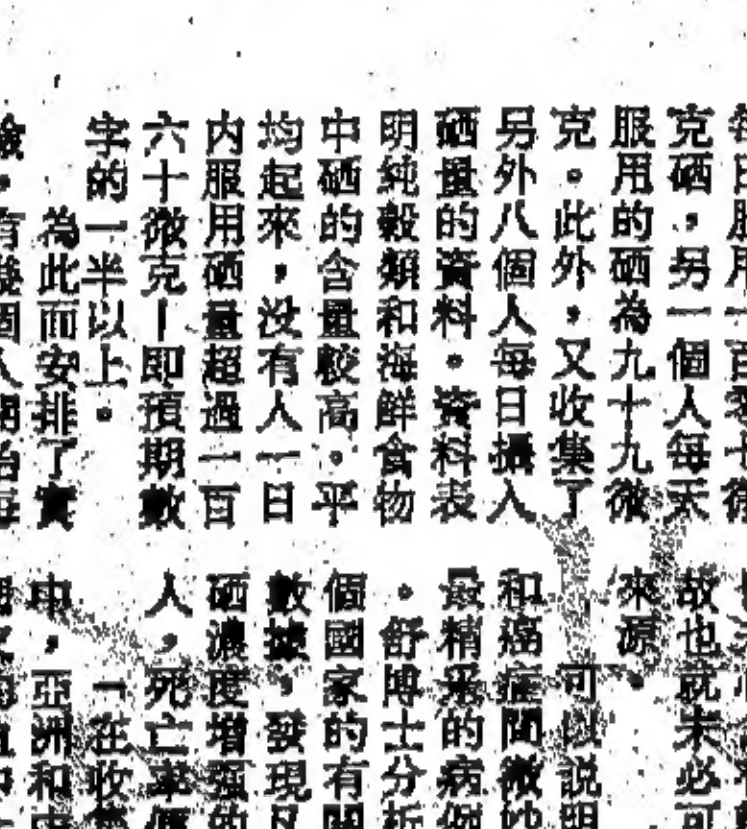 每日服用一百零七微
克硒，另一個人每天
服用的硒為九十九微
克。此外，又收集了
另外八個人每日攝入
硒量的資料。資料表
明純穀類和海鮮食物
中硒的含量較高。平
均起來，没有人一日
内服用硒量超過一百
六十微克—即預期數
字的一半以上。
為此而安排了實
有幾個人開始每
故也就未必可
來源。
可以説明
和癌症間微妙
最精采的病例
。舒博士分析
個國家的有關
數據，發現凡
硒濃度增强的
人，死亡率便
一在收集
中，亞洲和中